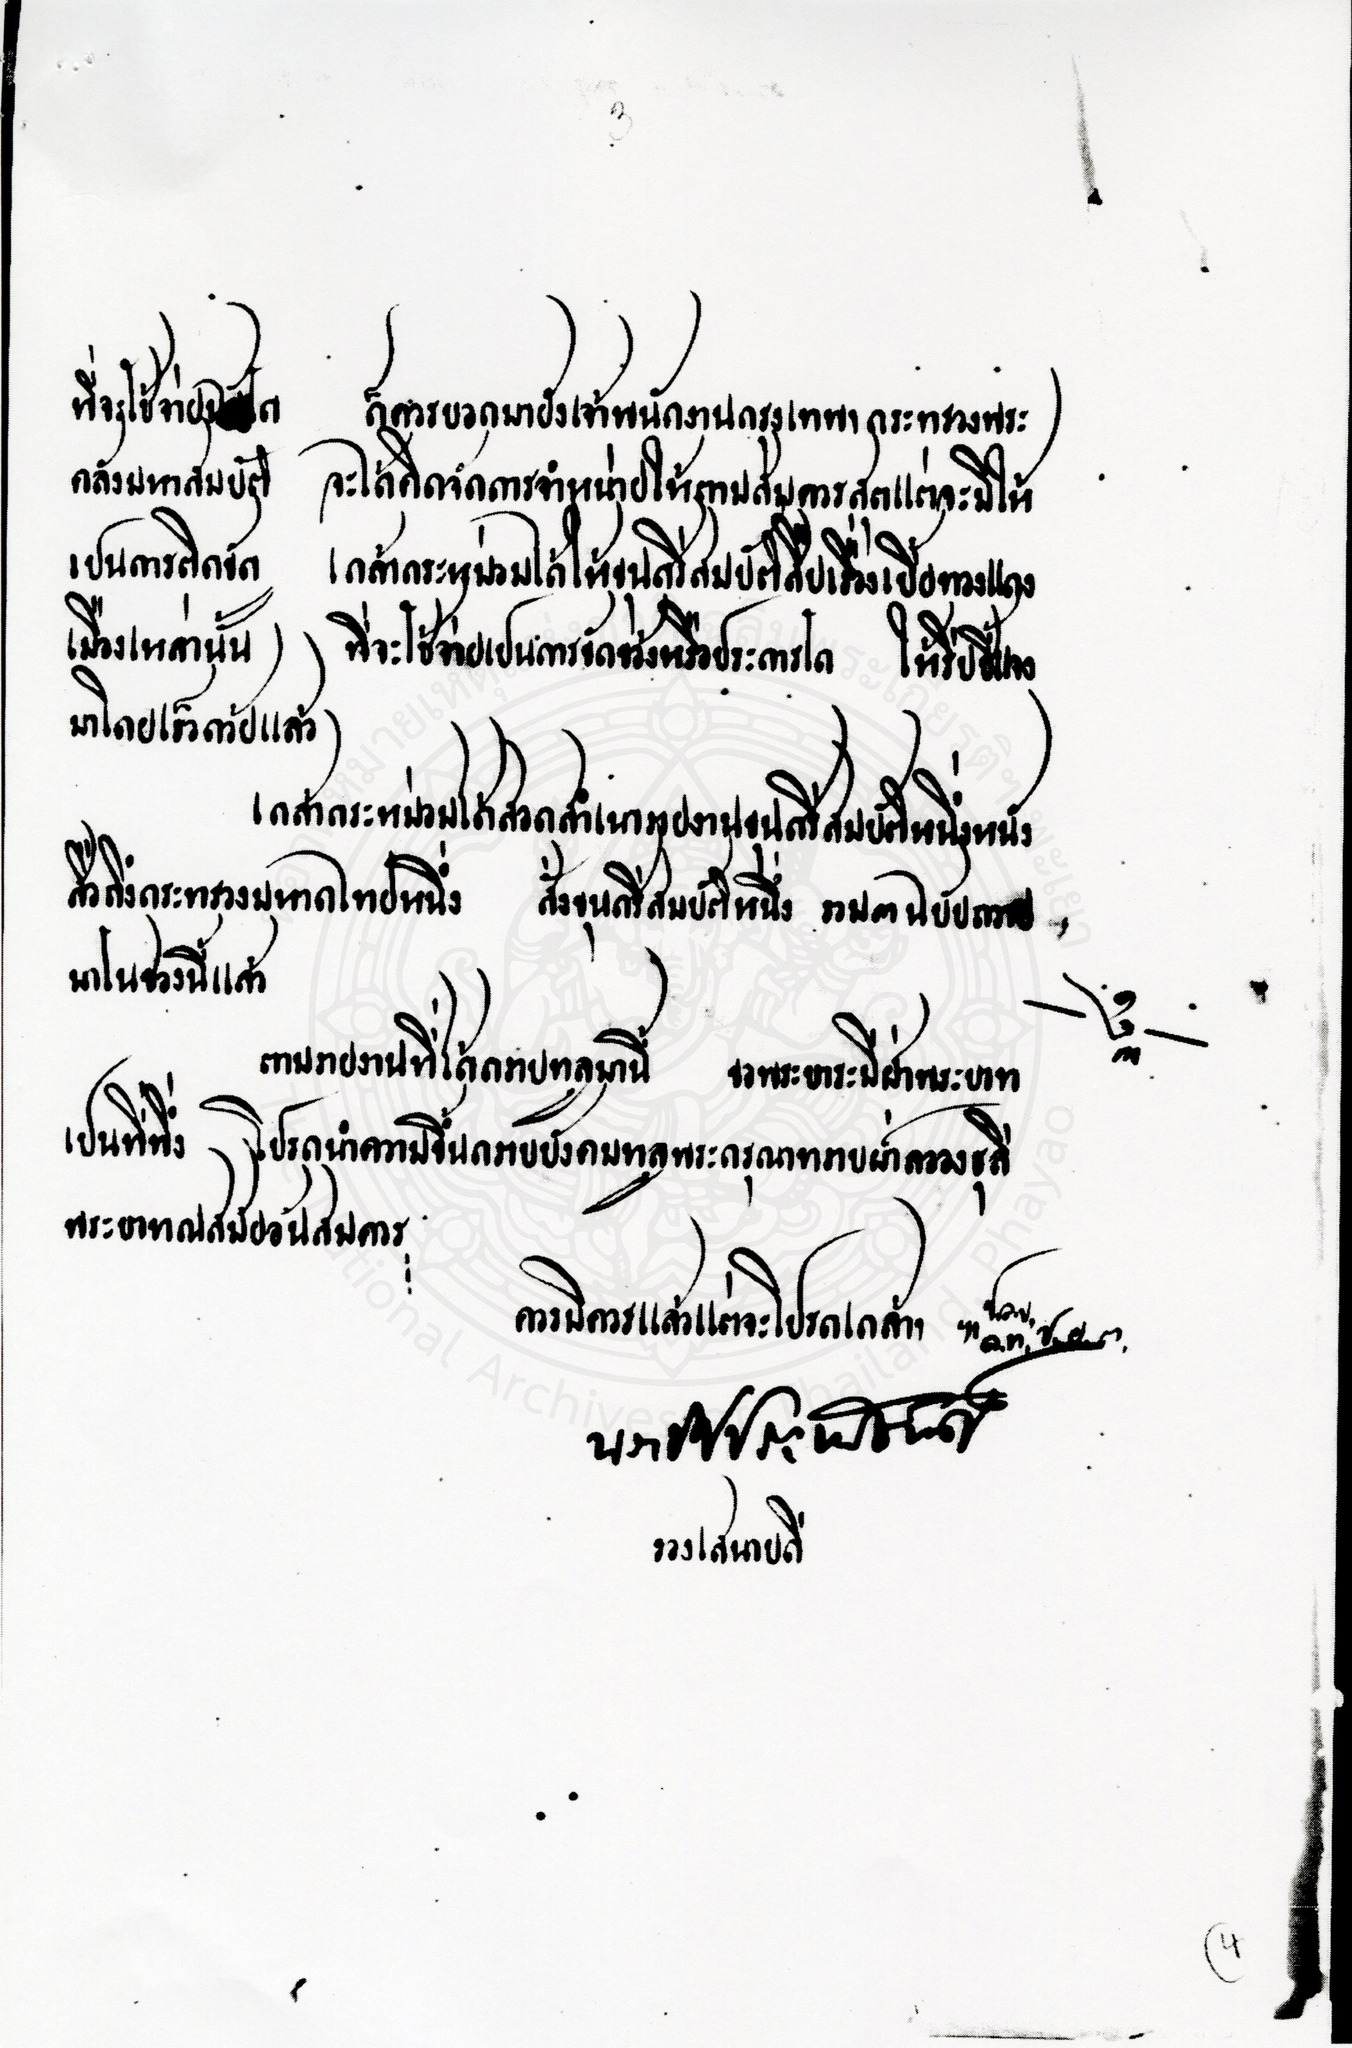 3
ที่จะใช้จ่าย ก็ควรบอกมายังเจ้าพนักงานกรุงเทพฯ กระทรวงพระ
คลังมหาสมบัติ จะได้คิดจัดการจำหน่ายให้ตามสมควรสุดแต่จะมิให้
เป็นการติดขัด เกล้ากระหม่อมได้ให้ขุนศรีสมบัติสืบเรื่องเบี้ยทองแดง
เมืองเหล่านั้น ที่จะใช้จ่ายเป็นการขัดข้องหรือประการใด ให้รีบชี้แจง
มาโดยเร็วด้วยแล้ว
เกล้ากระหม่อมได้สอดสำเนารายงานขุนศรีสมบัติหนึ่งหนัง
สือถึงกระทรวงมหาดไทยหนึ่ง สั่งขุนศรีสมบัติหนึ่ง รวม ๓ ฉบับถวาย
มาในซองนี้แล้ว
ตามรายงานที่ได้กราบทูลมานี้ ขอพระบารมีฝ่าพระบาท
เป็นที่พึ่ง โปรดนำความขึ้นกราบบังคมทูลพระกรุณาทราบฝ่าลอองธุลี
พระบาทณสมัยอันสมควร
ควรมิควรแล้วแต่จะโปรดเกล้าฯ
รองเสนาบดี
หอจดหมายเหตุแห่งชาติเฉลิมพระเกียรติฯ พะเยา
National Archives of Thailand Phayao
4